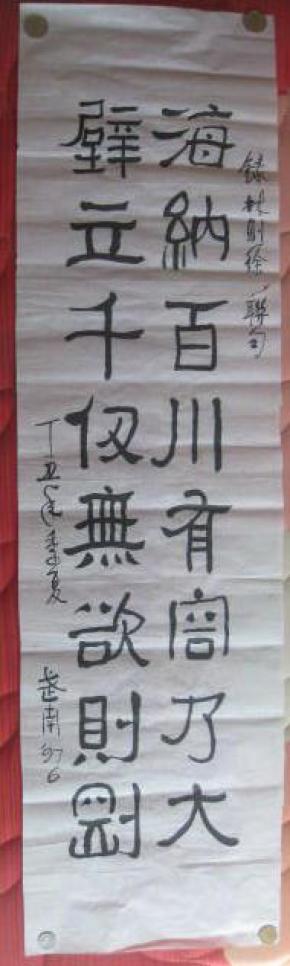 錄林則徐聯句
海納百川有容乃大
壁立千仞無欲則剛
丁丑年季夏